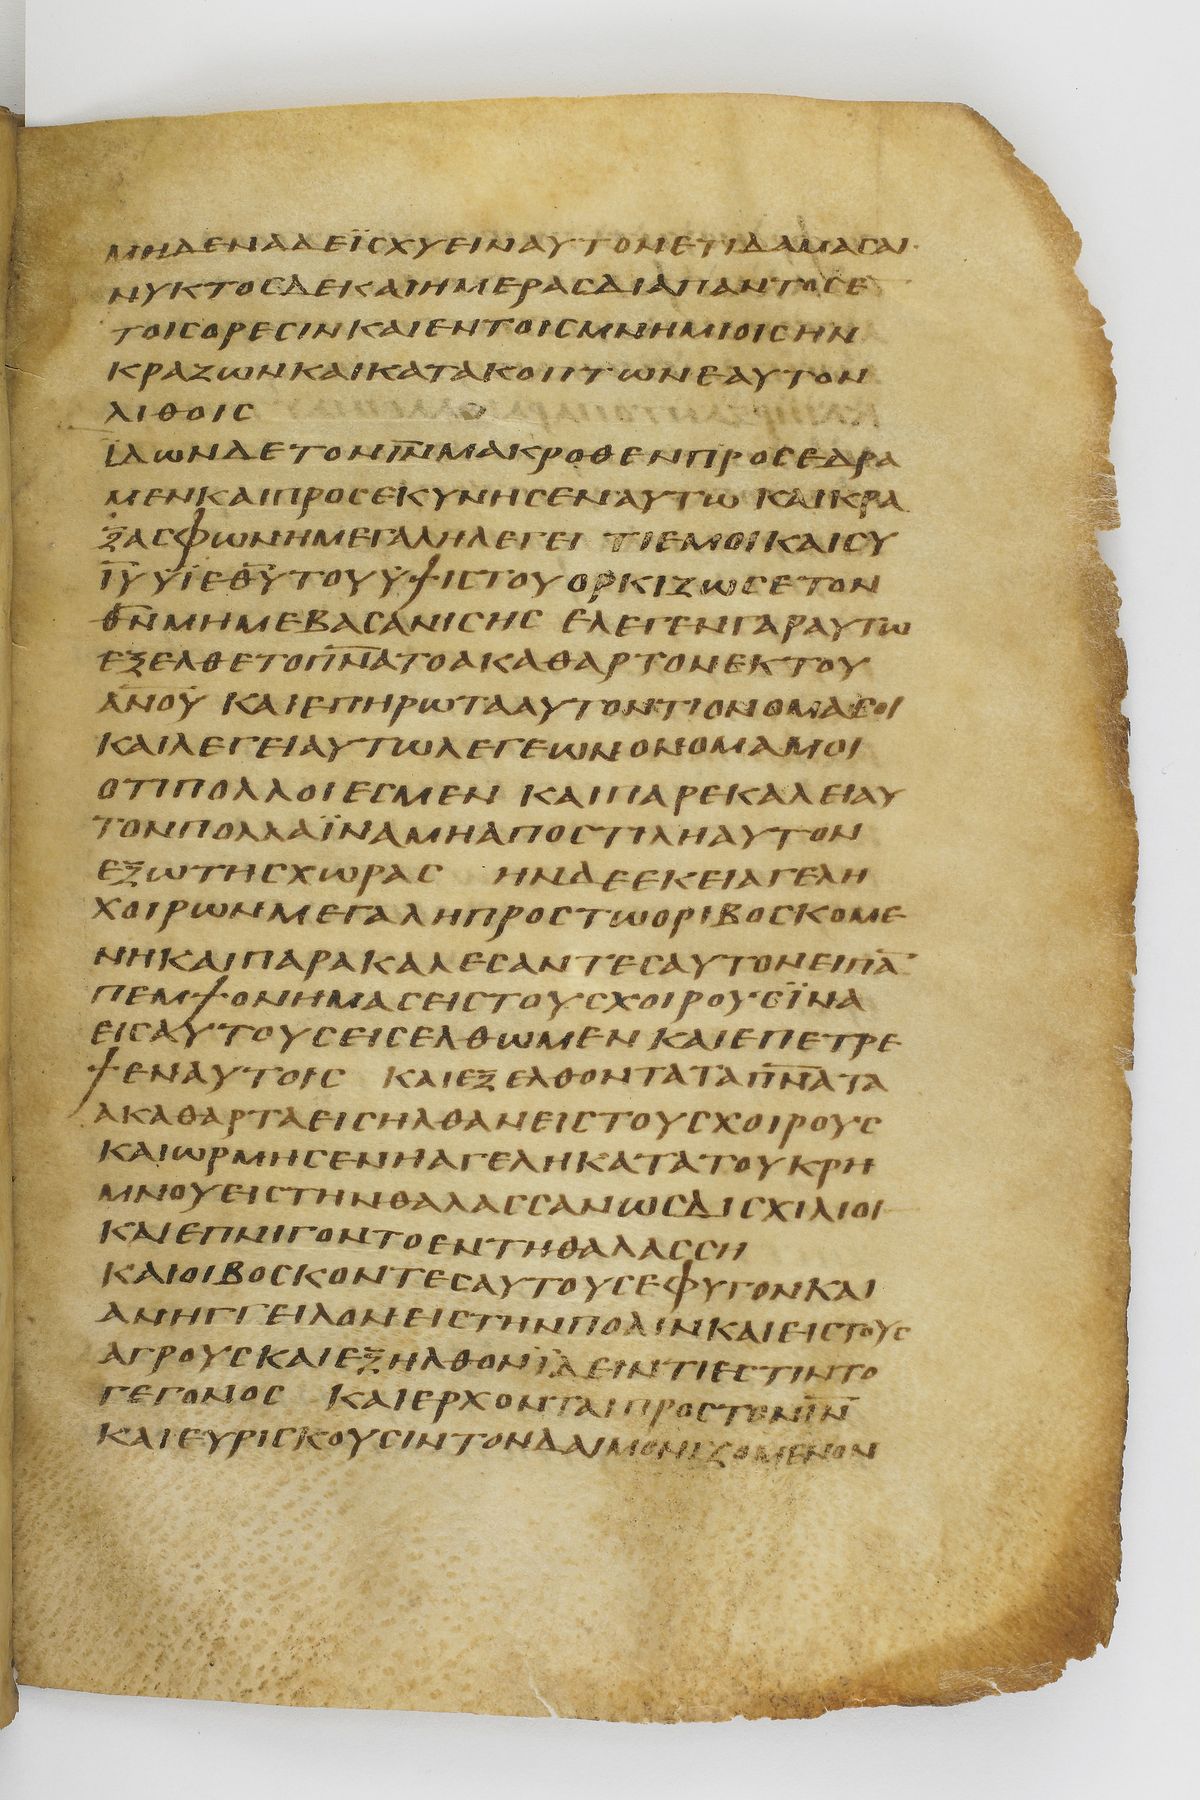 ΜΗΔΕΝΑΔΕΪϹΧΥΕΙΝΑΥΤΟΝΕΤΙΔΑΜΑϹΑΙ
ΝΥΚΤΟϹΔΕΚΑΙΗΜΕΡΑϹΔΙΑΠΑΝΤΟϹΕ
ΤΟΙϹΟΡΕϹΙΝΚΑΙΕΝΤΟΙϹΜΝΗΜΙΟΙϹΗΝ
ΚΡΑΖΩΝΚΑΙΚΑΤΑΚΟΠΤΩΝΕΑΥΤΟΝ
ΛΙΘΟΙϹ
ΪΔΩΝΔΕΤΟΝΙ̅Ν̅ΜΑΚΡΟΘΕΝΠΡΟϹΕΔΡΑ
ΜΕΝΚΑΙΠΡΟϹΕΚΥΝΗϹΕΝΑΥΤΩ ΚΑΙΚΡΑ
ΞΑϹΦΩΝΗΜΕΓΑΛΗΛΕΓΕΙ ΤΙΕΜΟΙΚΑΙϹΥ
Ι̅Υ̅ΥΪΕΘ̅Υ̅ΤΟΥΫΨΙϹΤΟΥΟΡΚΙΖΩϹΕΤΟΝ
Θ̅Ν̅ΜΗΜΕΒΑϹΑΝΙϹΗϹ ΕΛΕΓΕΝΓΑΡΑΥΤΩ
ΕΞΕΛΘΕΤΟΠ̅Ν̅Α̅ΤΟΑΚΑΘΑΡΤΟΝΕΚΤΟΥ
Α̅Ν̅ΟΥ̅ ΚΑΙΕΠΗΡΩΤΑΑΥΤΟΝΤΙΟΝΟΜΑϹΟΙ
ΚΑΙΛΕΓΕΙΑΥΤΩΛΕΓΕΩΝΟΝΟΜΑΜΟΙ
ΟΤΙΠΟΛΛΟΙΕϹΜΕΝ ΚΑΙΠΑΡΕΚΑΛΕΙΑΥ
ΤΟΝΠΟΛΛΑΪΝΑΜΗΑΠΟϹΤΙΛΗΑΥΤΟΝ
ΕΞΩΤΗϹΧΩΡΑϹ ΗΝΔΕΕΚΕΙΑΓΕΛΗ
ΧΟΙΡΩΝΜΕΓΑΛΗΠΡΟϹΤΩΟΡΙΒΟϹΚΟΜΕ
ΝΗΚΑΙΠΑΡΑΚΑΛΕϹΑΝΤΕϹΑΥΤΟΝΕΙΠΑ̅
ΠΕΜΨΟΝΗΜΑϹΕΙϹΤΟΥϹΧΟΙΡΟΥϹΪΝΑ
ΕΙϹΑΥΤΟΥϹΕΙϹΕΛΘΩΜΕΝ ΚΑΙΕΠΕΤΡΕ
ΨΕΝΑΥΤΟΙϹ ΚΑΙΕΞΕΛΘΟΝΤΑΤΑΠ̅Ν̅Α̅ΤΑ
ΑΚΑΘΑΡΤΑΕΙϹΗΛΘΑΝΕΙϹΤΟΥϹΧΟΙΡΟΥϹ
ΚΑΙΩΡΜΗϹΕΝΗΑΓΕΛΗΚΑΤΑΤΟΥΚΡΗ
ΜΝΟΥΕΙϹΤΗΝΘΑΛΑϹϹΑΝΩϹΔΙϹΧΙΛΙΟΙ
ΚΑΙΕΠΝΙΓΟΝΤΟΕΝΤΗΘΑΛΑϹϹΗ
ΚΑΙΟΙΒΟϹΚΟΝΤΕϹΑΥΤΟΥϹΕΦΥΓΟΝΚΑΙ
ΑΝΗΓΓΕΙΛΟΝΕΙϹΤΗΝΠΟΛΙΝΚΑΙΕΙϹΤΟΥϹ
ΑΓΡΟΥϹΚΑΙΕΞΗΛΘΟΝΪΔΕΙΝΤΙΕϹΤΙΝΤΟ
ΓΕΓΟΝΟϹ ΚΑΙΕΡΧΟΝΤΑΙΠΡΟϹΤΟΝΙ̅Ν̅
ΚΑΙΕΥΡΙϹΚΟΥϹΙΝΤΟΝΔΑΙΜΟΝΙΖΟΜΕΝΟΝ